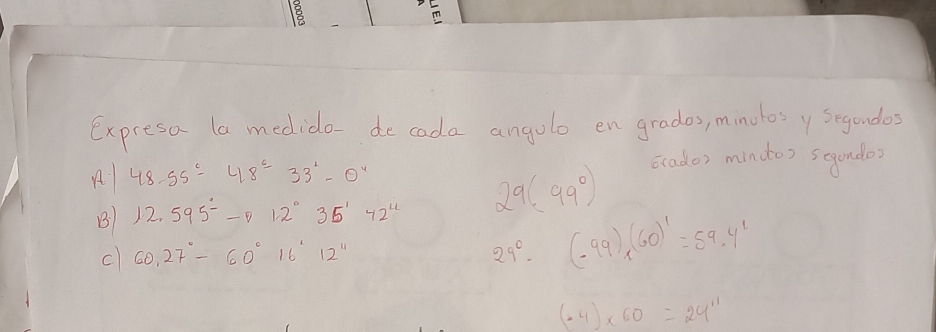 00003
LI E.I
A
Expresa la medida de cada angulo en grados, minutos y segundos
Grados minutos segundos
A) 48.55° - 48° 33' - 0"
29( 99°)
B) 12.595° - 12° 35' 42"
29°. (.99)x(60)' = 59.4'
C) 60,27° - 60° 16' 12"
(.4) x 60 = 24"